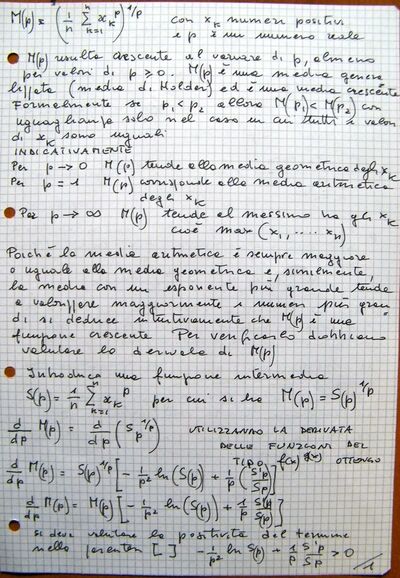 M(p) = (1/n ∑_{k=1}^{n} x_k^p)^{1/p} con x_k numeri positivi
e p è un numero reale
M(p) risulta crescente al variare di p, almeno
per valori di p ≥ 0. M(p) è una media genera
lizzata (media di Hölder) ed è una media crescente
Formalmente se p₁ < p₂ allora M(p₁) < M(p₂) con
uguaglianza solo nel caso in cui tutti i valori
di x_k sono uguali
INDICATIVAMENTE
Per p → 0 M(p) tende alla media geometrica degli x_K
Per p = 1 M(p) corrisponde alla media aritmetica
degli x_K
Per p → ∞ M(p) tende al massimo tra gli x_K
cioè max (x₁, .... x_n)
Poichè la media aritmetica è sempre maggiore
o uguale alla media geometrica e, similmente,
la media con un esponente più grande tende
a valorizzare maggiormente i numeri più gran
di si deduce intuitivamente che M(p) è una
funzione crescente Per verificarlo dobbiamo
valutare la derivata di M(p)
Introduco una funzione intermedia
S(p) = 1/n ∑_{k=1}^{n} x_k^p per cui si ha M(p) = S(p)^{1/p}
d/dp M(p) = d/dp (S_p^{1/p}) UTILIZZANDO LA DERIVATA
DELLE FUNZIONI DEL
TIPO f(x)^{g(x)} OTTENGO
d/dp M(p) = S(p)^{1/p} [-1/p² ln(S(p)) + 1/p (S'p/Sp)]
d/dp M(p) = M(p) [-1/p² ln(S(p)) + 1/p S'(p)/S(p)]
si deve valutare la positività del termine
nella parentesi [ ] -1/p² ln S(p) + 1/p S'p/Sp > 0
1